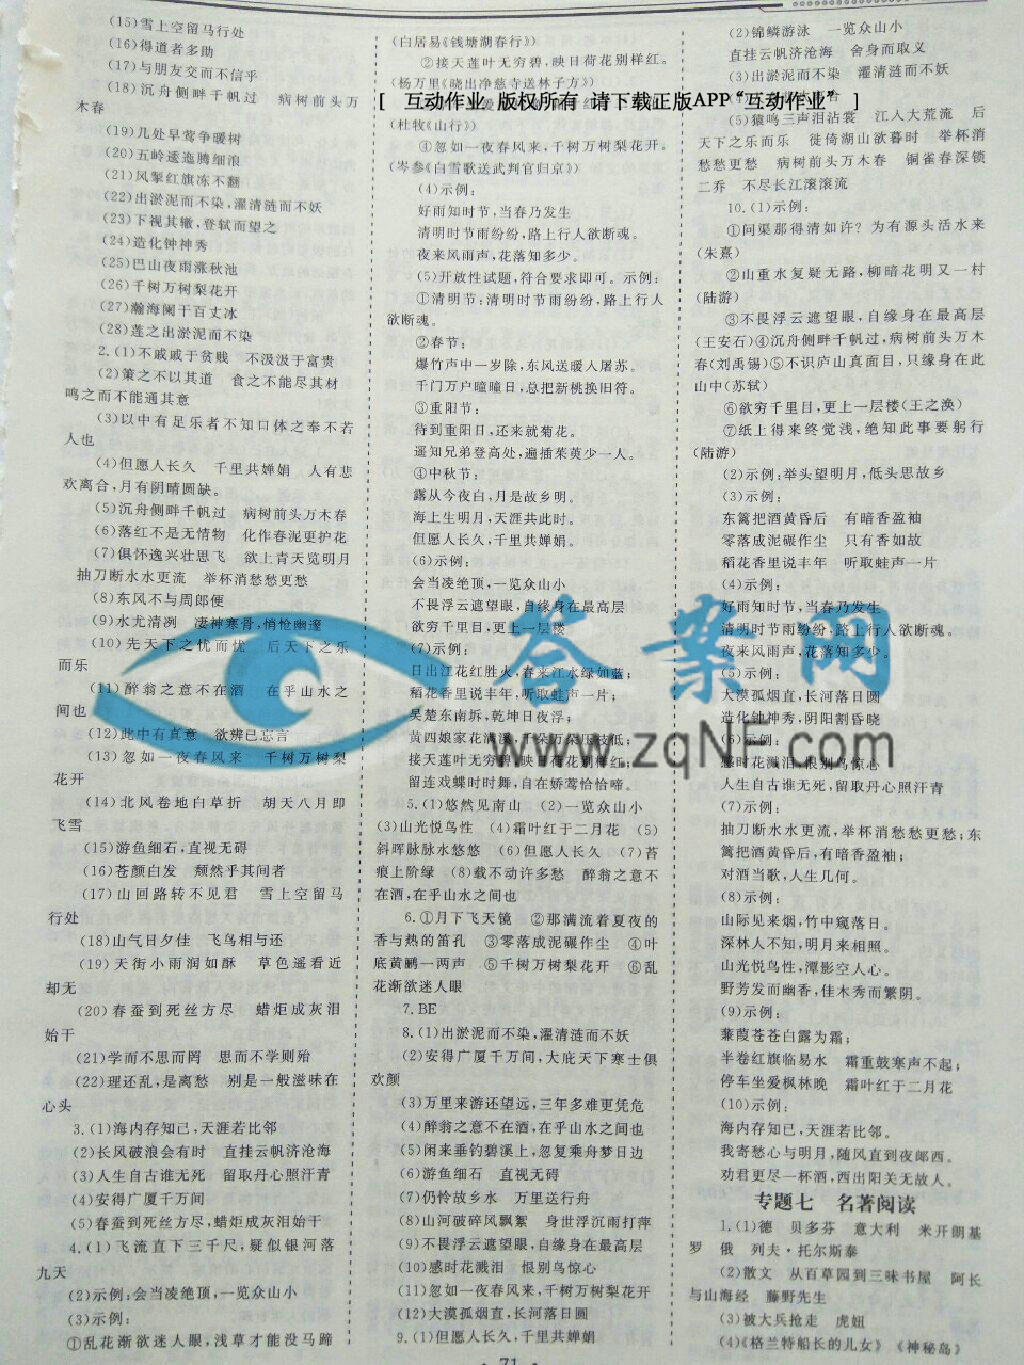 (15)雪上空留马行处
(16)得道者多助
(17)与朋友交而不信乎
(18)沉舟侧畔千帆过　病树前头万
木春
(19)几处早莺争暖树
(20)五岭逶迤腾细浪
(21)风掣红旗冻不翻
(22)出淤泥而不染,濯清涟而不妖
(23)下视其辙,登轼而望之
(24)造化钟神秀
(25)巴山夜雨涨秋池
(26)千树万树梨花开
(27)瀚海阑干百丈冰
(28)莲之出淤泥而不染
2.(1)不戚戚于贫贱　不汲汲于富贵
(2)策之不以其道　食之不能尽其材
鸣之而不能通其意
(3)以中有足乐者不知口体之奉不若
人也
(4)但愿人长久　千里共婵娟　人有悲
欢离合,月有阴晴圆缺。
(5)沉舟侧畔千帆过　病树前头万木春
(6)落红不是无情物　化作春泥更护花
(7)俱怀逸兴壮思飞　欲上青天览明月
抽刀断水水更流　举杯消愁愁更愁
(8)东风不与周郎便
(9)水尤清冽　凄神寒骨,悄怆幽邃
(10)先天下之忧而忧　后天下之乐
而乐
(11)醉翁之意不在酒　在乎山水之
间也
(12)此中有真意　欲辨已忘言
(13)忽如一夜春风来　千树万树梨
花开
(14)北风卷地白草折　胡天八月即
飞雪
(15)游鱼细石,直视无碍
(16)苍颜白发　颓然乎其间者
(17)山回路转不见君　雪上空留马
行处
(18)山气日夕佳　飞鸟相与还
(19)天街小雨润如酥　草色遥看近
却无
(20)春蚕到死丝方尽　蜡炬成灰泪
始干
(21)学而不思而罔　思而不学则殆
(22)理还乱,是离愁　别是一般滋味在
心头
3.(1)海内存知己,天涯若比邻
(2)长风破浪会有时　直挂云帆济沧海
(3)人生自古谁无死　留取丹心照汗青
(4)安得广厦千万间
(5)春蚕到死丝方尽,蜡炬成灰泪始干
4.(1)飞流直下三千尺,疑似银河落
九天
(2)示例:会当凌绝顶,一览众山小
(3)示例:
①乱花渐欲迷人眼,浅草才能没马蹄
(白居易《钱塘湖春行》)
②接天莲叶无穷碧,映日荷花别样红。
(杨万里《晓出净慈寺送林子方》)
[　互动作业　版权所有　请下载正版APP“互动作业”　]
(杜牧《山行》)
④忽如一夜春风来,千树万树梨花开。
(岑参《白雪歌送武判官归京》)
(4)示例:
好雨知时节,当春乃发生
清明时节雨纷纷,路上行人欲断魂。
夜来风雨声,花落知多少。
(5)开放性试题,符合要求即可。示例:
①清明节:清明时节雨纷纷,路上行人
欲断魂。
②春节:
爆竹声中一岁除,东风送暖人屠苏。
千门万户曈曈日,总把新桃换旧符。
③重阳节:
待到重阳日,还来就菊花。
遥知兄弟登高处,遍插茱萸少一人。
④中秋节:
露从今夜白,月是故乡明。
海上生明月,天涯共此时。
但愿人长久,千里共婵娟。
(6)示例:
会当凌绝顶,一览众山小
不畏浮云遮望眼,自缘身在最高层
欲穷千里目,更上一层楼
(7)示例:
日出江花红胜火,春来江水绿如蓝;
稻花香里说丰年,听取蛙声一片;
吴楚东南坼,乾坤日夜浮;
黄四娘家花满溪,千朵万朵压枝低;
接天莲叶无穷碧,映日荷花别样红;
留连戏蝶时时舞,自在娇莺恰恰啼。
5.(1)悠然见南山　(2)一览众山小
(3)山光悦鸟性　(4)霜叶红于二月花　(5)
斜晖脉脉水悠悠　(6)但愿人长久　(7)苔
痕上阶绿　(8)载不动许多愁　醉翁之意不
在酒,在乎山水之间也
6.①月下飞天镜　②那满流着夏夜的
香与热的笛孔　③零落成泥碾作尘　④叶
底黄鹂一两声　⑤千树万树梨花开　⑥乱
花渐欲迷人眼
7.BE
8.(1)出淤泥而不染,濯清涟而不妖
(2)安得广厦千万间,大庇天下寒士俱
欢颜
(3)万里来游还望远,三年多难更凭危
(4)醉翁之意不在酒,在乎山水之间也
(5)闲来垂钓碧溪上,忽复乘舟梦日边
(6)游鱼细石　直视无碍
(7)仍怜故乡水　万里送行舟
(8)山河破碎风飘絮　身世浮沉雨打萍
(9)不畏浮云遮望眼,自缘身在最高层
(10)感时花溅泪　恨别鸟惊心
(11)忽如一夜春风来,千树万树梨花开
(12)大漠孤烟直,长河落日圆
9.(1)但愿人长久,千里共婵娟
(2)锦鳞游泳　一览众山小
直挂云帆济沧海　舍身而取义
(3)出淤泥而不染　濯清涟而不妖
(5)猿鸣三声泪沾裳　江入大荒流　后
天下之乐而乐　徙倚湖山欲暮时　举杯消
愁愁更愁　病树前头万木春　铜雀春深锁
二乔　不尽长江滚滚流
10.(1)示例:
①问渠那得清如许?为有源头活水来
(朱熹)
②山重水复疑无路,柳暗花明又一村
(陆游)
③不畏浮云遮望眼,自缘身在最高层
(王安石)④沉舟侧畔千帆过,病树前头万木
春(刘禹锡)⑤不识庐山真面目,只缘身在此
山中(苏轼)
⑥欲穷千里目,更上一层楼(王之涣)
⑦纸上得来终觉浅,绝知此事要躬行
(陆游)
(2)示例:举头望明月,低头思故乡
(3)示例:
东篱把酒黄昏后　有暗香盈袖
零落成泥碾作尘　只有香如故
稻花香里说丰年　听取蛙声一片
(4)示例:
好雨知时节,当春乃发生
清明时节雨纷纷,路上行人欲断魂。
夜来风雨声,花落知多少。
(5)示例:
大漠孤烟直,长河落日圆
造化钟神秀,阴阳割昏晓
(6)示例:
感时花溅泪,恨别鸟惊心
人生自古谁无死,留取丹心照汗青
(7)示例:
抽刀断水水更流,举杯消愁愁更愁;东
篱把酒黄昏后,有暗香盈袖;
对酒当歌,人生几何。
(8)示例:
山际见来烟,竹中窥落日。
深林人不知,明月来相照。
山光悦鸟性,潭影空人心。
野芳发而幽香,佳木秀而繁阴。
(9)示例:
蒹葭苍苍白露为霜;
半卷红旗临易水　霜重鼓寒声不起;
停车坐爱枫林晚　霜叶红于二月花
(10)示例:
海内存知己,天涯若比邻。
我寄愁心与明月,随风直到夜郎西。
劝君更尽一杯酒,西出阳关无故人。
专题七　名著阅读
1.(1)德　贝多芬　意大利　米开朗基
罗　俄　列夫·托尔斯泰
(2)散文　从百草园到三味书屋　阿长
与山海经　藤野先生
(3)被大兵抢走　虎妞
(4)《格兰特船长的儿女》《神秘岛》
答案网
www.zqNF.com
· 71 ·